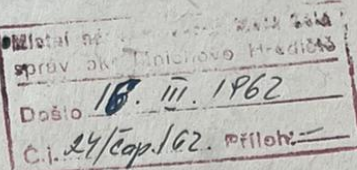 Místní
správ okr. Mnichovo Hradiště
Došlo 16. III. 1962
Č.j. 24/čap./62. Příloh: —